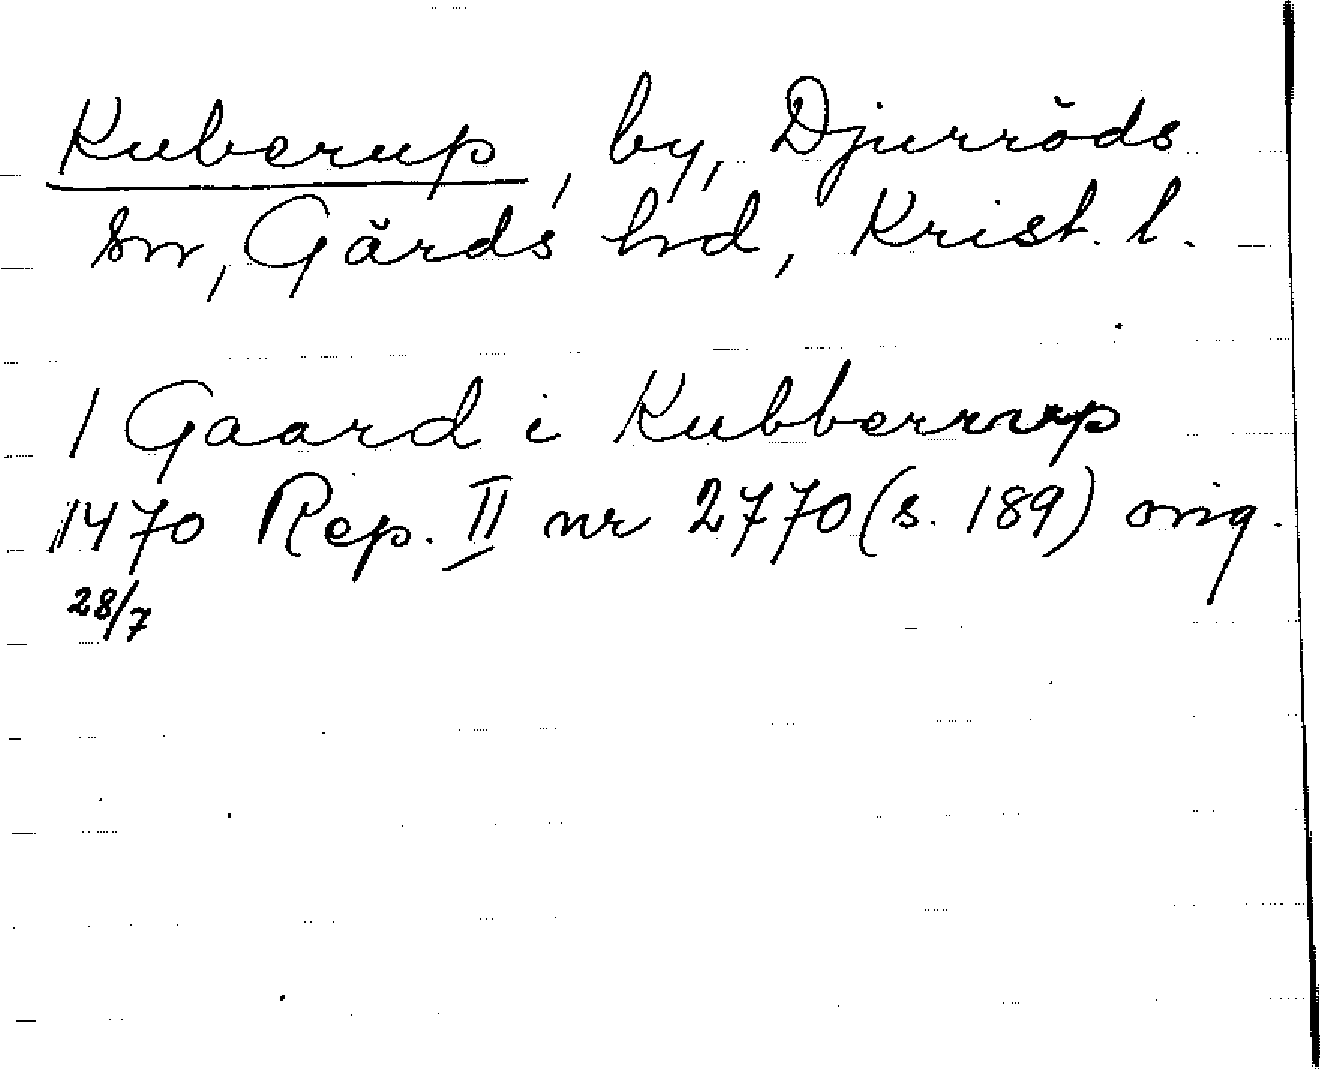 Kuberup, by, Djurröds
sn, Gärds hd, Krist. l.
1 Gaard i Kubberrup
1470 Rep. II nr 2770 (s. 189) orig.
28/7